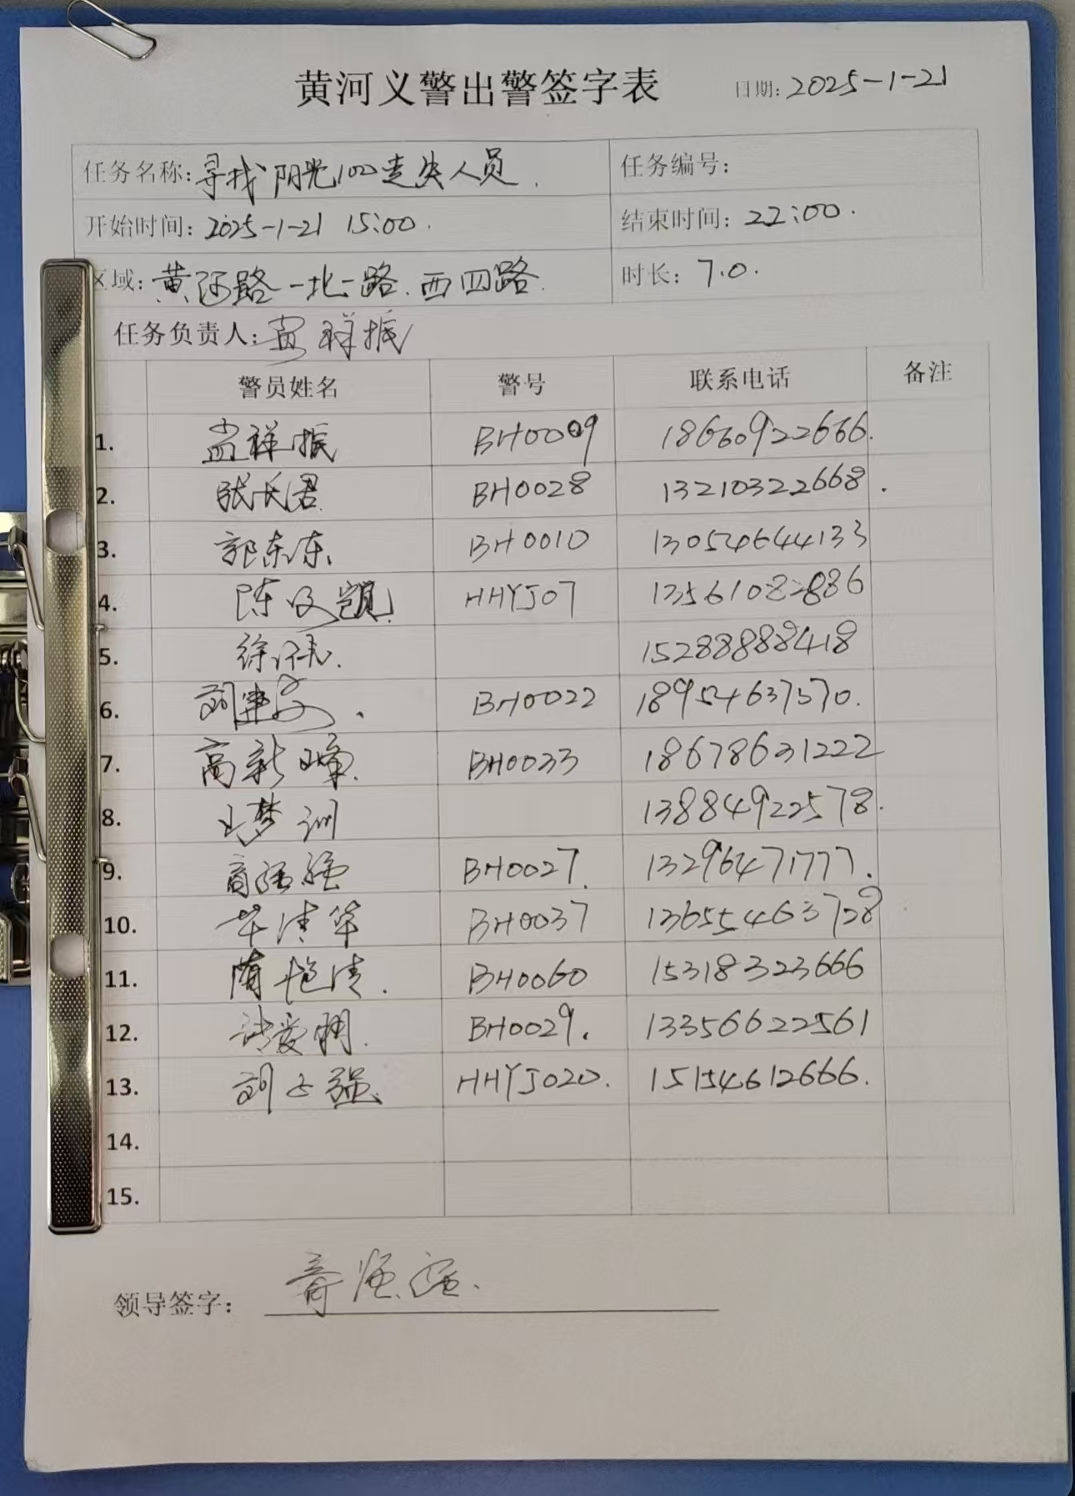 黄河义警出警签字表 日期: 2025-1-21
任务名称: 寻找阳光100走失人员. 任务编号:
开始时间: 2025-1-21 15:00. 结束时间: 22:00.
区域: 黄河路-北一路.西四路. 时长: 7.0.
任务负责人: 祥振
警员姓名 警号 联系电话 备注
1. 祥振 BH0009 18660922666.
2. 张长君. BH0028 13210322668.
3. 郭东东. BH0010 13054644133
4. 陈 HHYJ07 13561082886
5. 徐 15288888418
6. 刘建 BH0022 18954637570.
7. 高新峰. BH0033 18678631222
8. 梦训 13884922578.
9. 强 BH0027. 13296471777.
10. 毕清华 BH0037 13655463728
11. 隋艳清. BH0060 15318323666
12. 爱朋. BH0029. 13356622561
13. 刘强. HHYJ020. 15154612666.
14.
15.
领导签字: